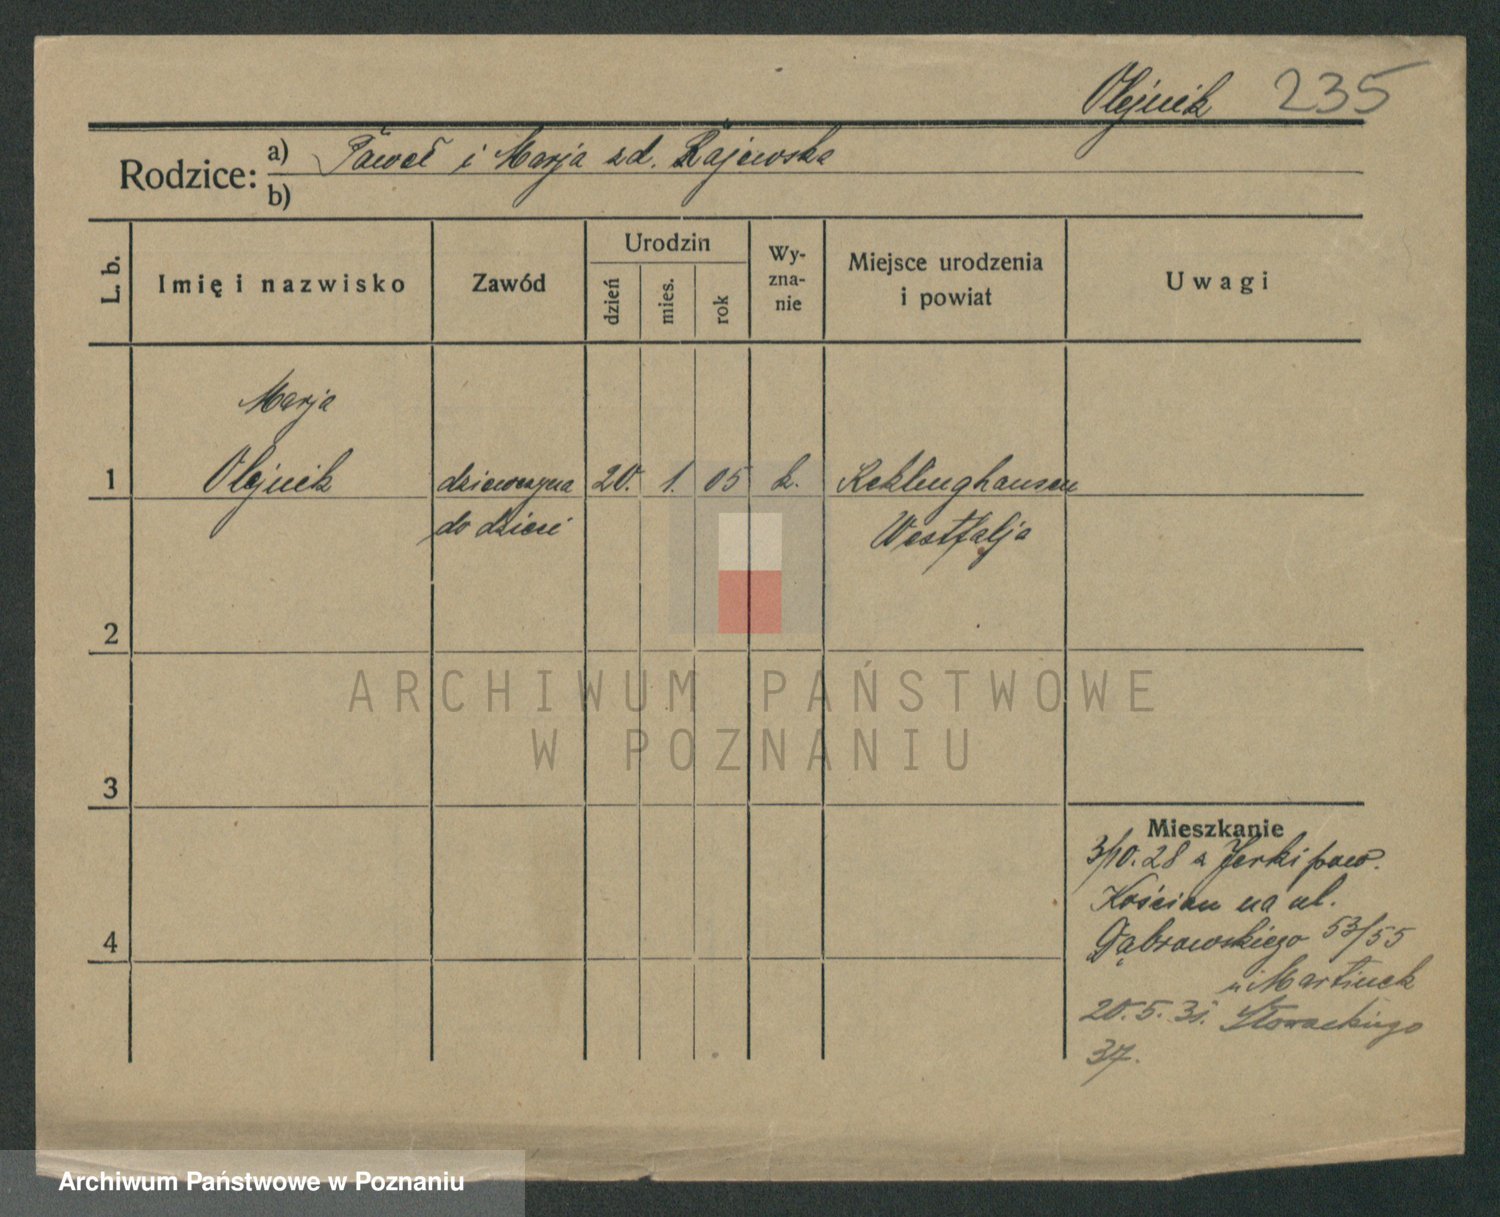 Olejnik 235
Rodzice: a) Paweł i Marja zd. Rajewska
b)
L. b.
Imię i nazwisko
Zawód
Urodzin
dzień
mies.
rok
Wy-
zna-
nie
Miejsce urodzenia
i powiat
Uwagi
Marja
1 Olejnik dziewczyna 20. 1. 05 k. Reklinghausen
do dzieci Westfalja
2
3
4
Mieszkanie
3/10.28 z Jerki pow.
Kościan na ul.
Dąbrowskiego 53/55
u Martinek
20.5.31. Słowackiego
37.
ARCHIWUM PAŃSTWOWE
W POZNANIU
Archiwum Państwowe w Poznaniu